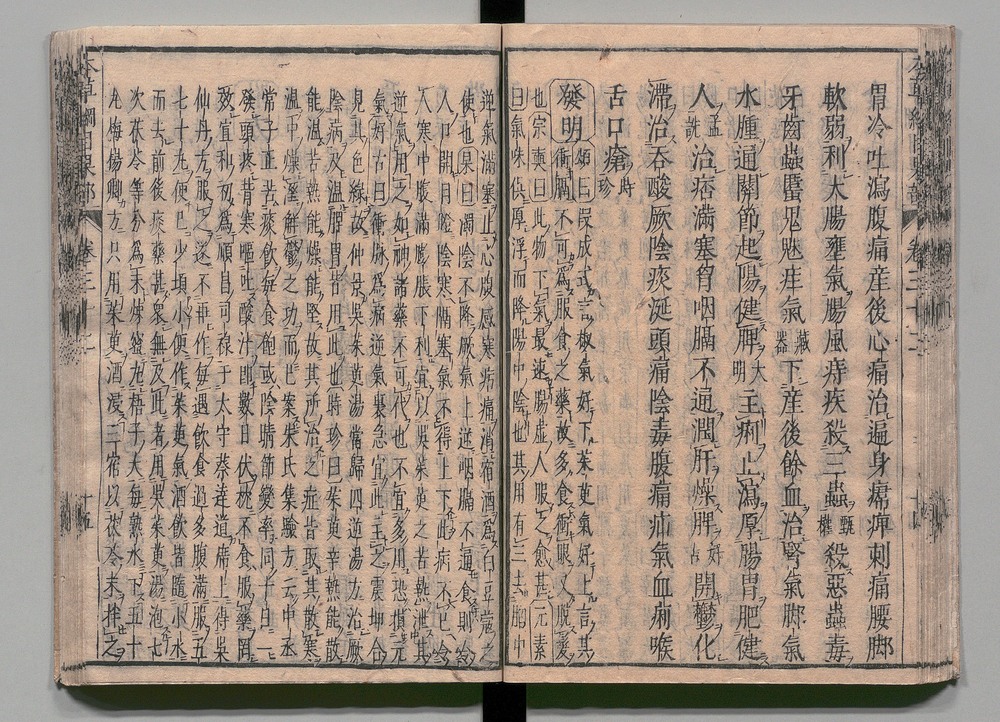 胃冷吐瀉腹痛産後心痛治遍身㿏痹刺痛腰脚
軟弱利大腸壅氣腸風痔疾殺三蟲甄權殺惡蟲毒
牙齒蟲䘌鬼魅疰氣藏器下産後餘血治腎氣脚氣
水腫通關節起陽健脾大明主痢止瀉厚腸胃肥健
人孟詵治痞滿塞胷咽膈不通潤肝燥脾好古開鬱化
滯治吞酸厥陰痰涎頭痛陰毒腹痛疝氣血痢喉
舌口瘡時珍
發明頌曰段成式言椒氣好下茱萸氣好上言其
衝膈不可爲服食之藥故多食衝眼又脫髮
也宗奭曰此物下氣最速腸虛人服之愈甚元素
曰氣味俱厚浮而降陽中陰也其用有三去胸中
逆氣滿塞止心腹感寒㽲痛消宿酒爲白豆蔻之
使也杲曰濁陰不降厥氣上逆咽膈不通食則令
人口開目瞪陰寒隔塞氣不得上下此病不已令
人寒中腹滿膨脹下利宜以吳茱萸之苦熱泄其
逆氣用之如神諸藥不可代也不宜多用恐損元
氣好古曰衝脉爲病逆氣裏急宜此主之震坤合
見其色緑故仲景吳茱萸湯當歸四逆湯方治厥
陰病及溫脾胃皆用此也時珍曰茱萸辛熱能散
能溫苦熱能燥能堅故其所治之症皆取其散寒
溫中燥濕解鬱之功而已案朱氏集驗方云中丞
常子正苦痰飲每食飽或陰晴節變率同十日一
發頭疼背寒嘔吐酸汁即數日伏枕不食服藥罔
效宣和初爲順昌司祿于太守蔡達道席上得吳
仙丹方服之遂不再作每遇飲食過多腹滿服五
七十丸便已少頃小便作茱萸氣酒飲皆隨小水
而去前後痰藥甚衆無及此者用吳茱萸湯泡七
次茯苓等分爲末煉蜜丸梧子大每熟水下五十
丸梅楊卿方只用茱萸酒浸三宿以茯苓末拌之